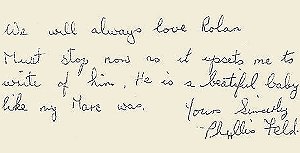 We will always love Rolan
Must stop now as it upsets me to
write of him, He is a beatiful baby
like my Marc was. Yours Sincerly
Phyllis Feld.